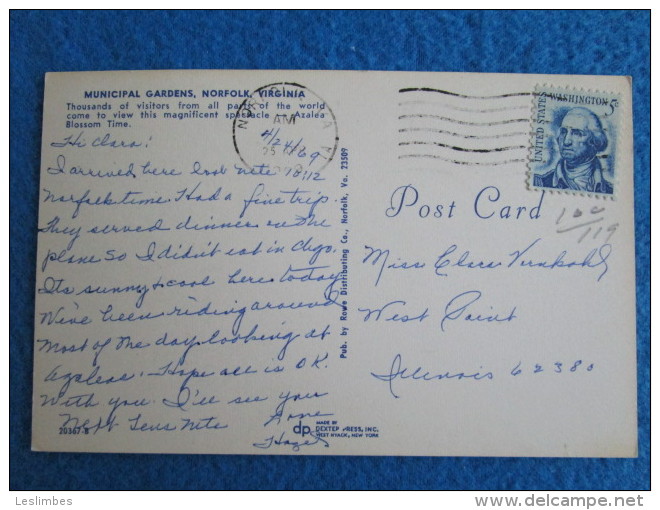 MUNICIPAL GARDENS, NORFOLK, VIRGINIA
Thousands of visitors from all parts of the world
come to view this magnificent spectacle Azalea
Blossom Time.
AM
25
4/24/69
Hi Clara!
I arrived here last nite 10:12
Norfolk time. Had a fine trip.
They served dinner on the
plane so I didn't eat in Chgo.
Its sunny & cool here today
We've been riding around
most of the day looking at
Azaleas. Hope all is O.K.
With you. I'll see you
Next Tues Nite
Love
Hazel
20367-B
Pub. by Rowe Distributing Co., Norfolk, Va. 23509
dp MADE BY
DEXTER PRESS, INC.
WEST NYACK, NEW YORK
UNITED STATES
WASHINGTON 5c
Post Card
100
/119
Miss Clara Vernkahl
West Point
Illinois 62380
Leslimbes
www.delcampe.net